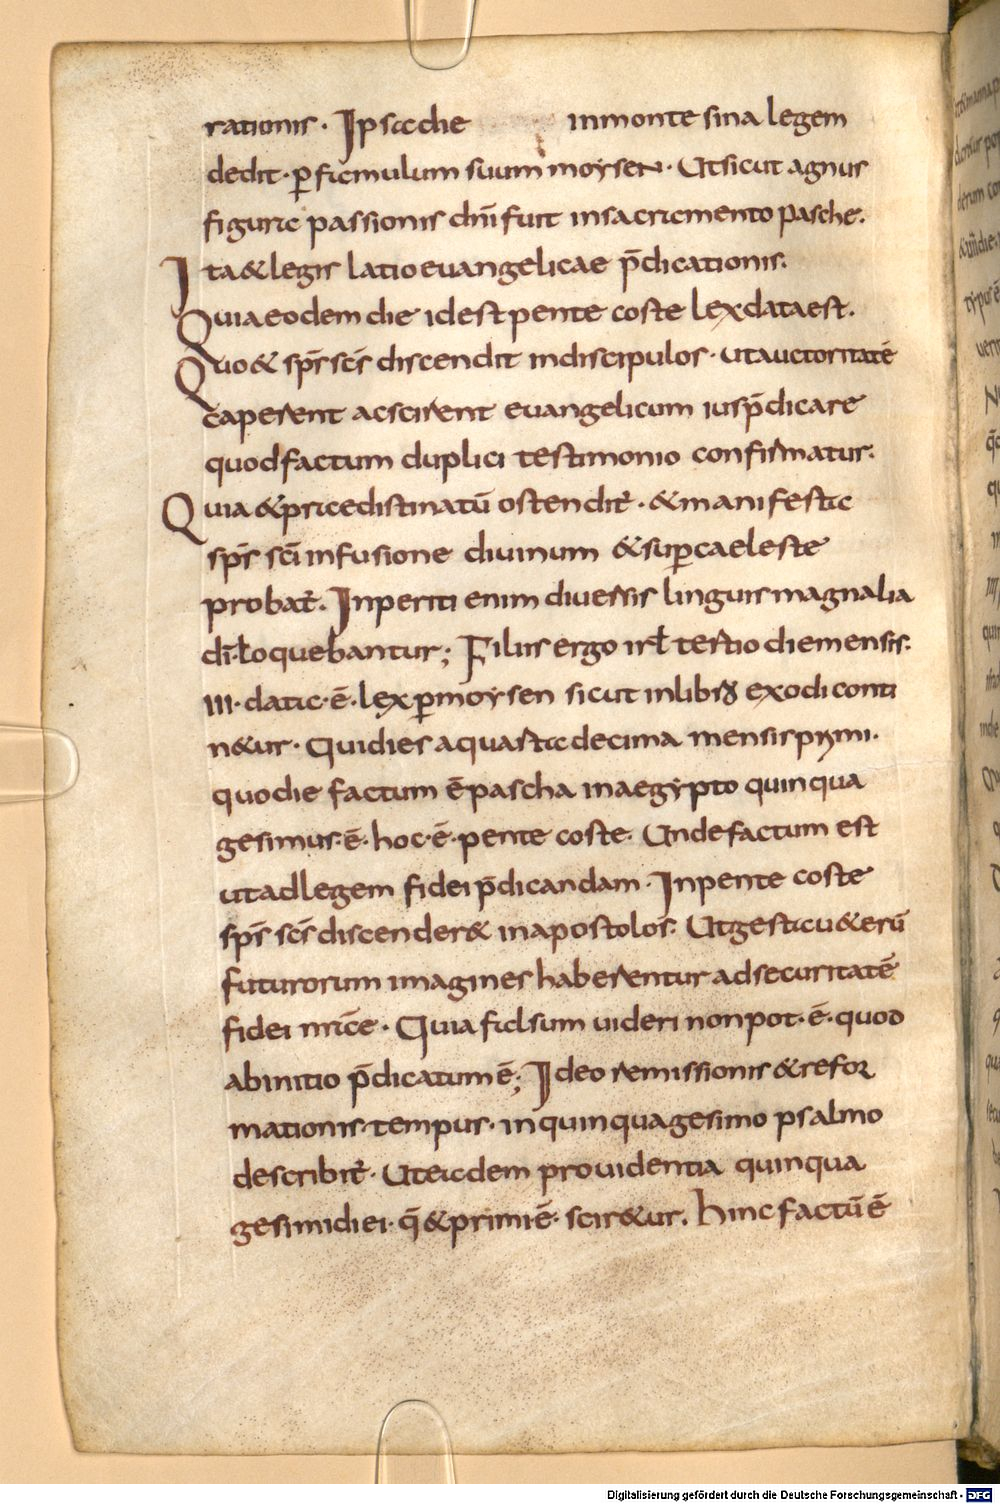 rationis. Ipsa die in monte sina legem
dedit. p̄ famulum suum moysen. Ut sicut agnus
figura passionis dn̄i fuit in sacramento pasche.
Ita & legis latio euangelicae p̄dicationis.
Quia eodem die id est pente coste lex data est.
Quo & sp̄s sc̄s discendit in discipulos. ut auctoritatē
caperent ac scirent euangelicum ius p̄dicare
quod factum duplici testimonio confirmatur.
Quia & praedistinatū ostendit̄. & manifesta
sp̄s sc̄i infusione diuinum & sup̄caeleste
probat̄. Inperiti enim diuersis linguis magnalia
dī. loquebantur; Filiis ergo isrł tertio die mensis.
III. data. ē. lex p̄ moysen sicut in libris exodi conti
n&ur. Qui dies a quarta decima mensis primi.
quo die factum ē pascha in aegypto quinqua
gesimus. ē. hoc. ē. pente coste. Unde factum est
ut ad legem fidei p̄dicandam. In pente coste
sp̄s sc̄s discender& in apostolos. Ut gesta cu&erū
futurorum imagines haberentur ad securitatē
fidei nr̄ae. Quia falsum uideri non pot. ē. quod
ab initio p̄dicatum ē; Ideo remissionis & refor
mationis tempus. in quinquagesimo psalmo
describit̄. Ut eadem prouidentia quinqua
gesimi diei. q̄ & primi ē. scir&ur. hinc factū ē
Digitalisierung gefördert durch die Deutsche Forschungsgemeinschaft - DFG